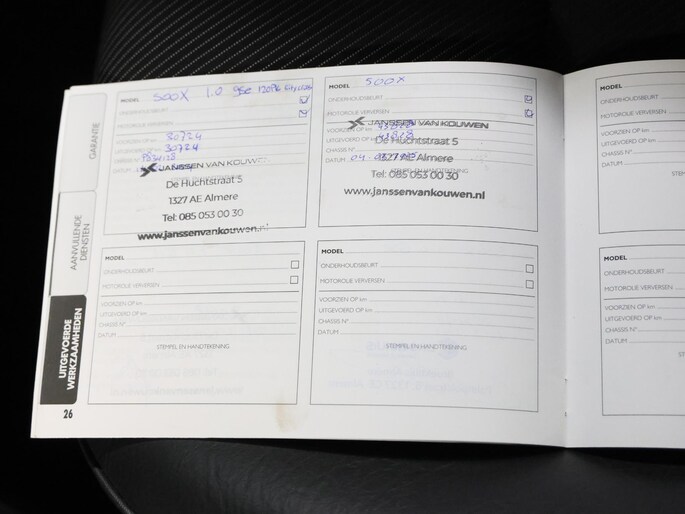 MODEL 500X 1.0
ONDERHOUDSBEURT
MOTOROLIE VERVERSEN
VOORZIEN OP km 30724
UITGEVOERD OP km 30724
CHASSIS N°
DATUM
JANSSEN VAN KOUWEN
De Huchtstraat 5
1327 AE Almere
Tel: 085 053 00 30
www.janssenvankouwen.nl
MODEL 500X
ONDERHOUDSBEURT
MOTOROLIE VERVERSEN
VOORZIEN OP km
UITGEVOERD OP km
CHASSIS N°
DATUM
JANSSEN VAN KOUWEN
De Huchtstraat 5
1327 AE Almere
Tel: 085 053 00 30
STEMPEL EN HANDTEKENING
www.janssenvankouwen.nl
MODEL
ONDERHOUDSBEURT
MOTOROLIE VERVERSEN
VOORZIEN OP km
UITGEVOERD OP km
CHASSIS N°
DATUM
MODEL
ONDERHOUDSBEURT
MOTOROLIE VERVERSEN
VOORZIEN OP km
UITGEVOERD OP km
CHASSIS N°
DATUM
STEMPEL EN HANDTEKENING
MODEL
ONDERHOUDSBEURT
MOTOROLIE VERVERSEN
VOORZIEN OP km
UITGEVOERD OP km
CHASSIS N°
DATUM
STEMPEL EN HANDTEKENING
MODEL
ONDERHOUDSBEURT
MOTOROLIE VERVERSEN
VOORZIEN OP km
UITGEVOERD OP km
CHASSIS N°
DATUM
GARANTIE
AANVULLENDE
DIENSTEN
UITGEVOERDE
WERKZAAMHEDEN
26